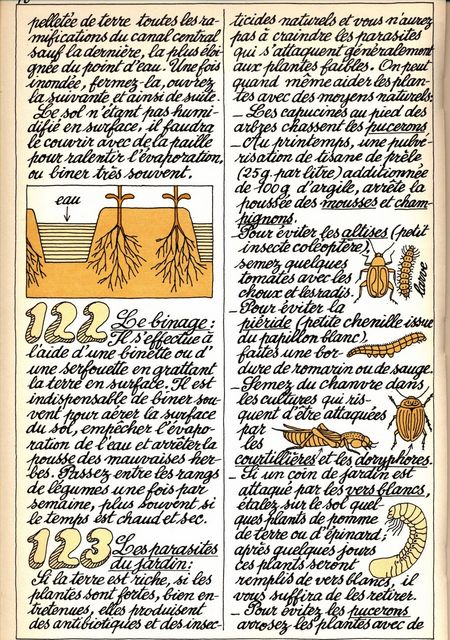 pelletée de terre toutes les ra-
mifications du canal central
sauf la dernière, la plus éloi-
gnée du point d'eau. Une fois
inondée, fermez-la, ouvrez
la suivante et ainsi de suite.
Le sol n'étant pas humi-
difié en surface, il faudra
le couvrir avec de la paille
pour ralentir l'évaporation,
ou biner très souvent.
eau
122 Le binage :
Il s'effectue à
l'aide d'une binette ou d'
une serfouette en grattant
la terre en surface. Il est
indispensable de biner sou-
vent pour aérer la surface
du sol, empêcher l'évapo-
ration de l'eau et arrêter la
pousse des mauvaises her-
bes. Passez entre les rangs
de légumes une fois par
semaine, plus souvent si
le temps est chaud et sec.
123 Les parasites
du jardin :
Si la terre est riche, si les
plantes sont fortes, bien en-
tretenues, elles produisent
des antibiotiques et des insec-
ticides naturels et vous n'aurez
pas à craindre les parasites
qui s'attaquent généralement
aux plantes faibles. On peut
quand même aider les plan-
tes avec des moyens naturels.
_ Les capucines au pied des
arbres chassent les pucerons.
_ Au printemps, une pulvé-
risation de tisane de prêle
(25 g. par litre) additionnée
de 100 g d'argile, arrête la
poussée des mousses et cham-
pignons.
_ Pour éviter les altises (petit
insecte coléoptère),
semez quelques
tomates avec les
choux et les radis.
larve
_ Pour éviter la
piéride (petite chenille issue
du papillon blanc),
faites une bor-
dure de romarin ou de sauge.
_ Semez du chanvre dans
les cultures qui ris-
quent d'être attaquées
par
les
courtillières et les doryphores.
_ Si un coin de jardin est
attaqué par les vers blancs,
étalez sur le sol quel-
ques plants de pomme
de terre ou d'épinard ;
après quelques jours
ces plants seront
remplis de vers blancs, il
vous suffira de les retirer.
_ Pour évitez les pucerons
arrosez les plantes avec de